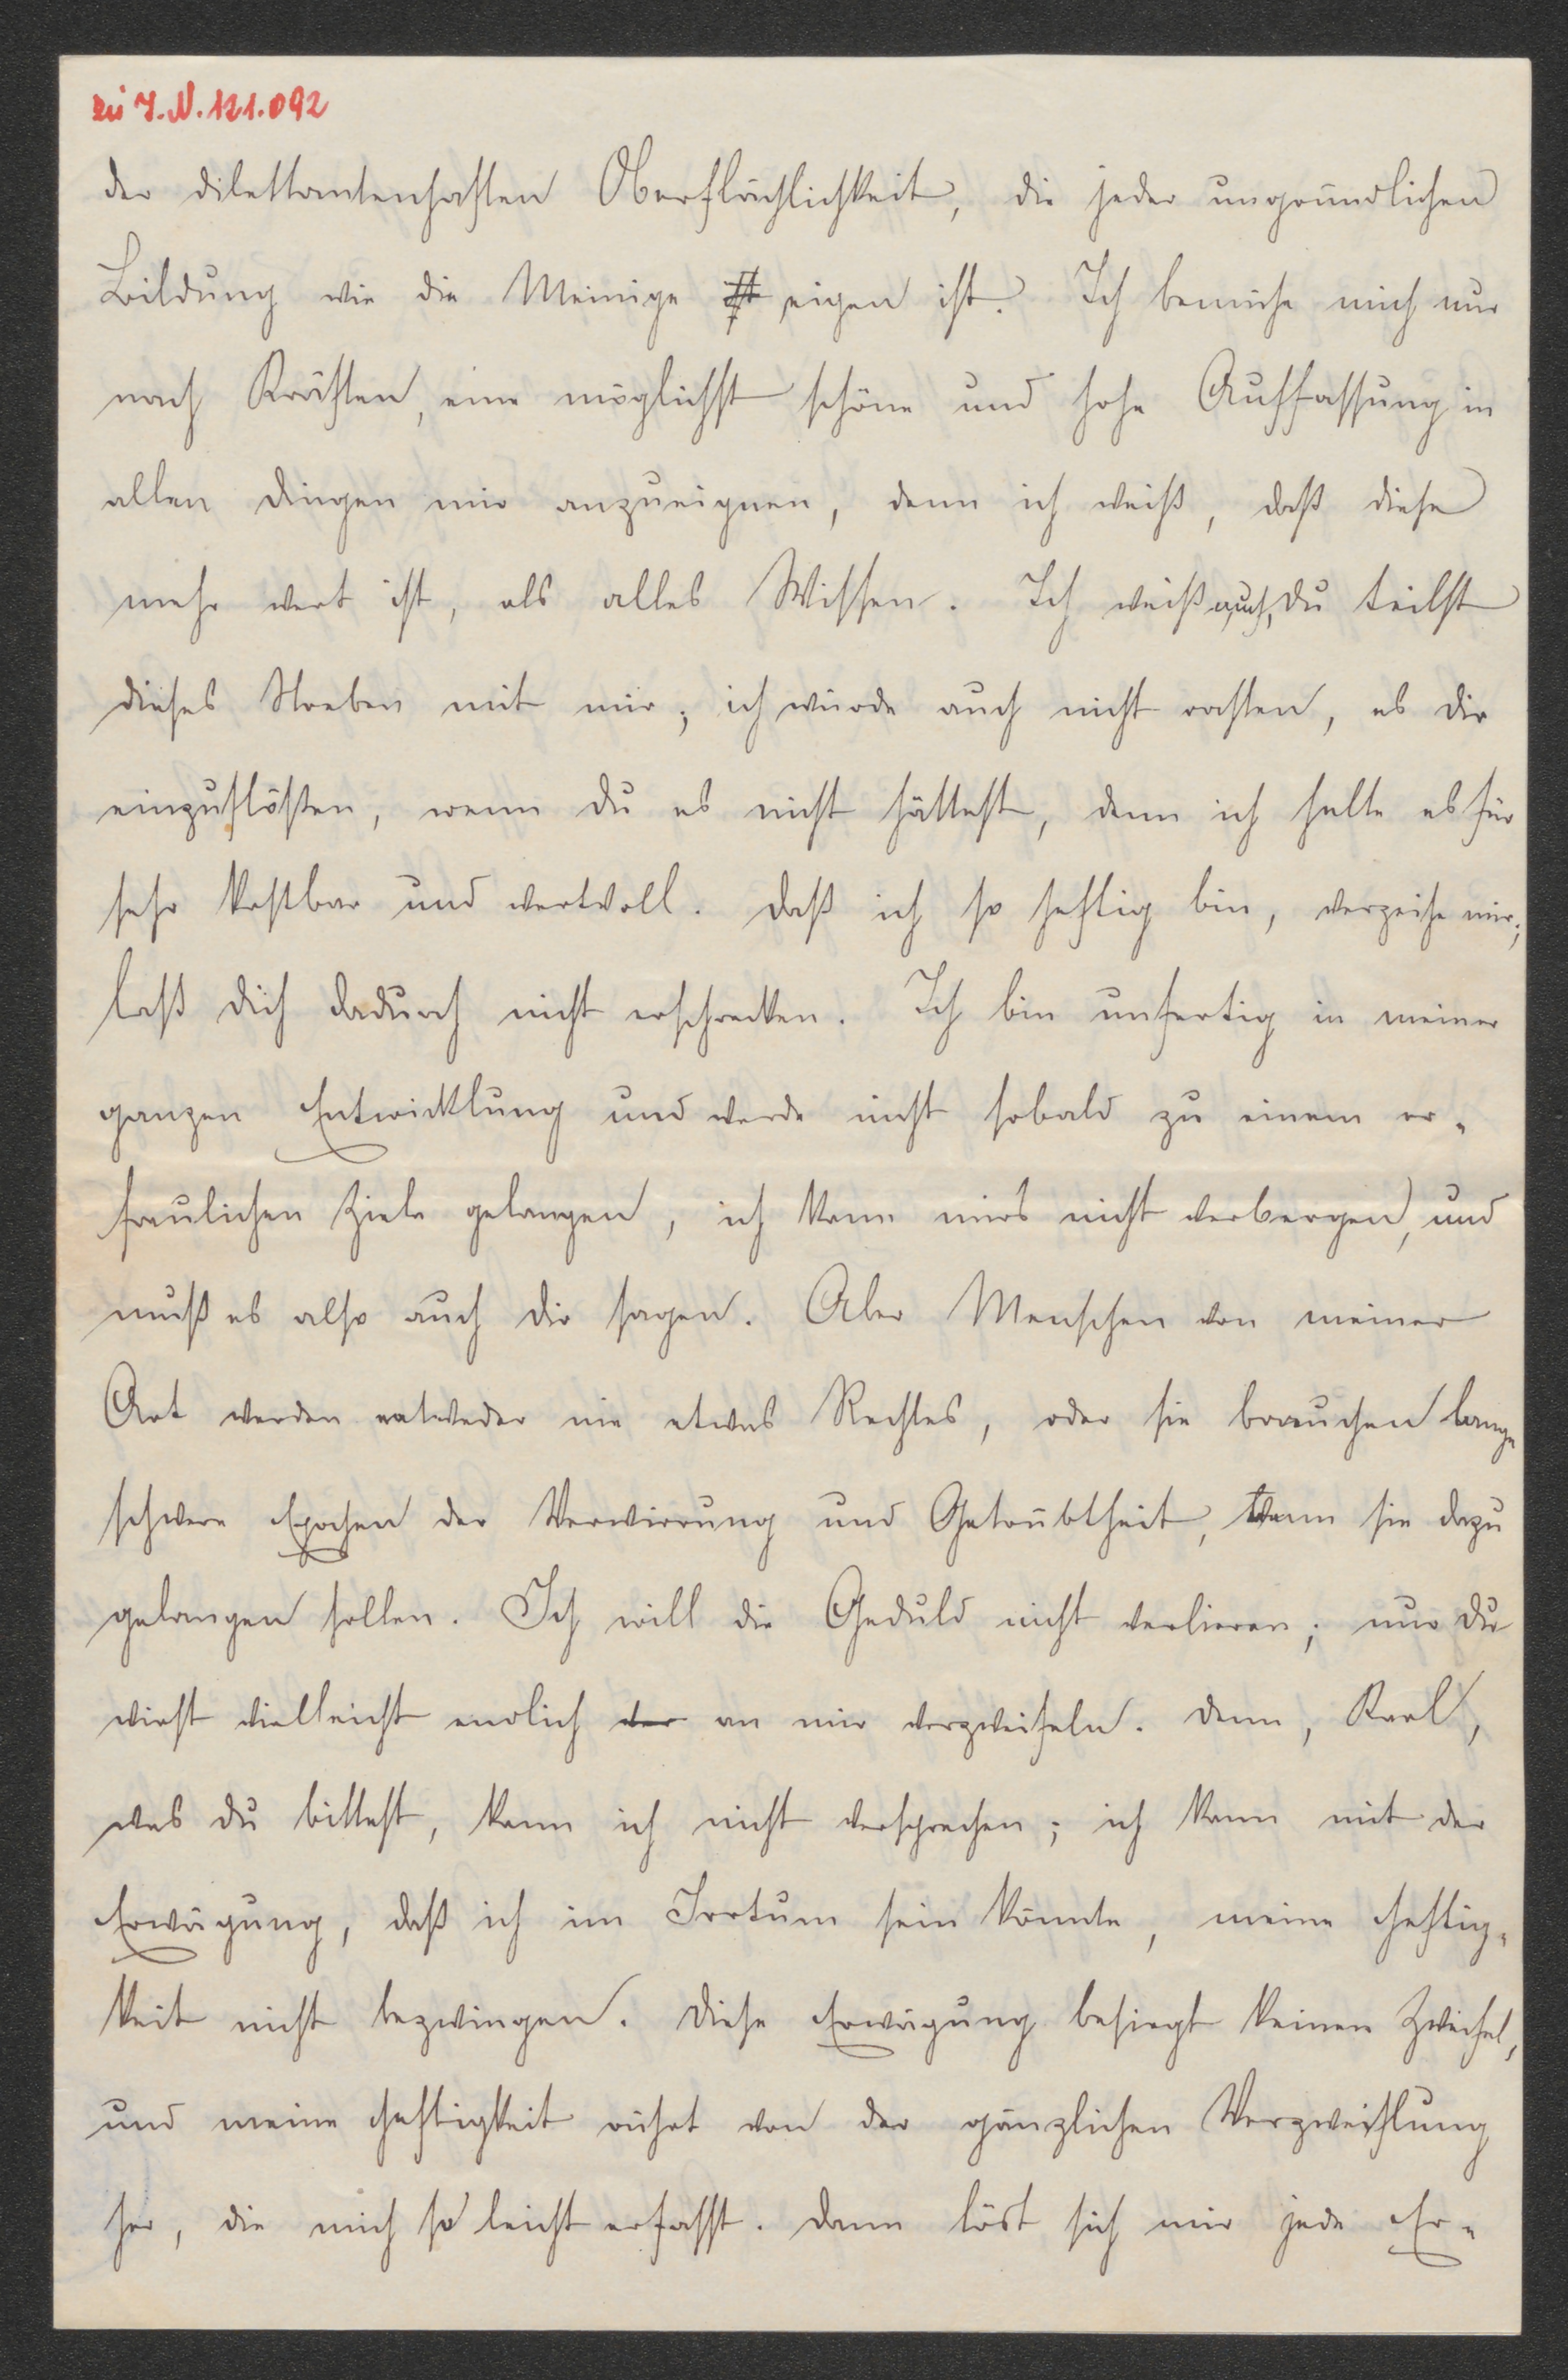 zu I.N. 121.092
der dilettantenhaften Oberflächlichkeit, die jeder ungründlichen
Bildung wie die Meinige ist eigen ist. Ich bemühe mich nur
nach Kräften, eine möglichst schöne und hohe Auffassung in
allen Dingen mir anzueignen, denn ich weiß, daß diese
mehr wert ist, als alles Wissen. Ich weiß auch, du teilst
dieses Streben mit mir; ich würde auch nicht rasten, es dir
einzuflößen, wenn du es nicht hättest, denn ich halte es für
sehr kostbar und wertvoll. Daß ich so heftig bin, verzeihe mir;
laß dich dadurch nicht erschrecken. Ich bin unfertig in meiner
ganzen Entwicklung und werde nicht sobald zu einem er-
freulichen Ziele gelangen, ich kann mirs nicht verbergen, und
muß es also auch dir sagen. Aber Menschen von meiner
Art werden entweder nie etwas Rechtes, oder sie brauchen lange
schwere Epochen der Verwirrung und Getrübtheit, wenn sie dazu
gelangen sollen. Ich will die Geduld nicht verlieren; nur du
wirst vielleicht endlich ver an mir verzweifeln. Denn, Karl,
was du bittest, kann ich nicht versprechen; ich kann mit der
Erwägung, daß ich im Irrtum sein könnte, meine Heftig-
keit nicht bezwingen. Diese Erwägung besiegt keinen Zweifel,
und meine Heftigkeit rührt von der gänzlichen Verzweiflung
her, die mich so leicht erfasst. Dann löst sich mir jede Er-